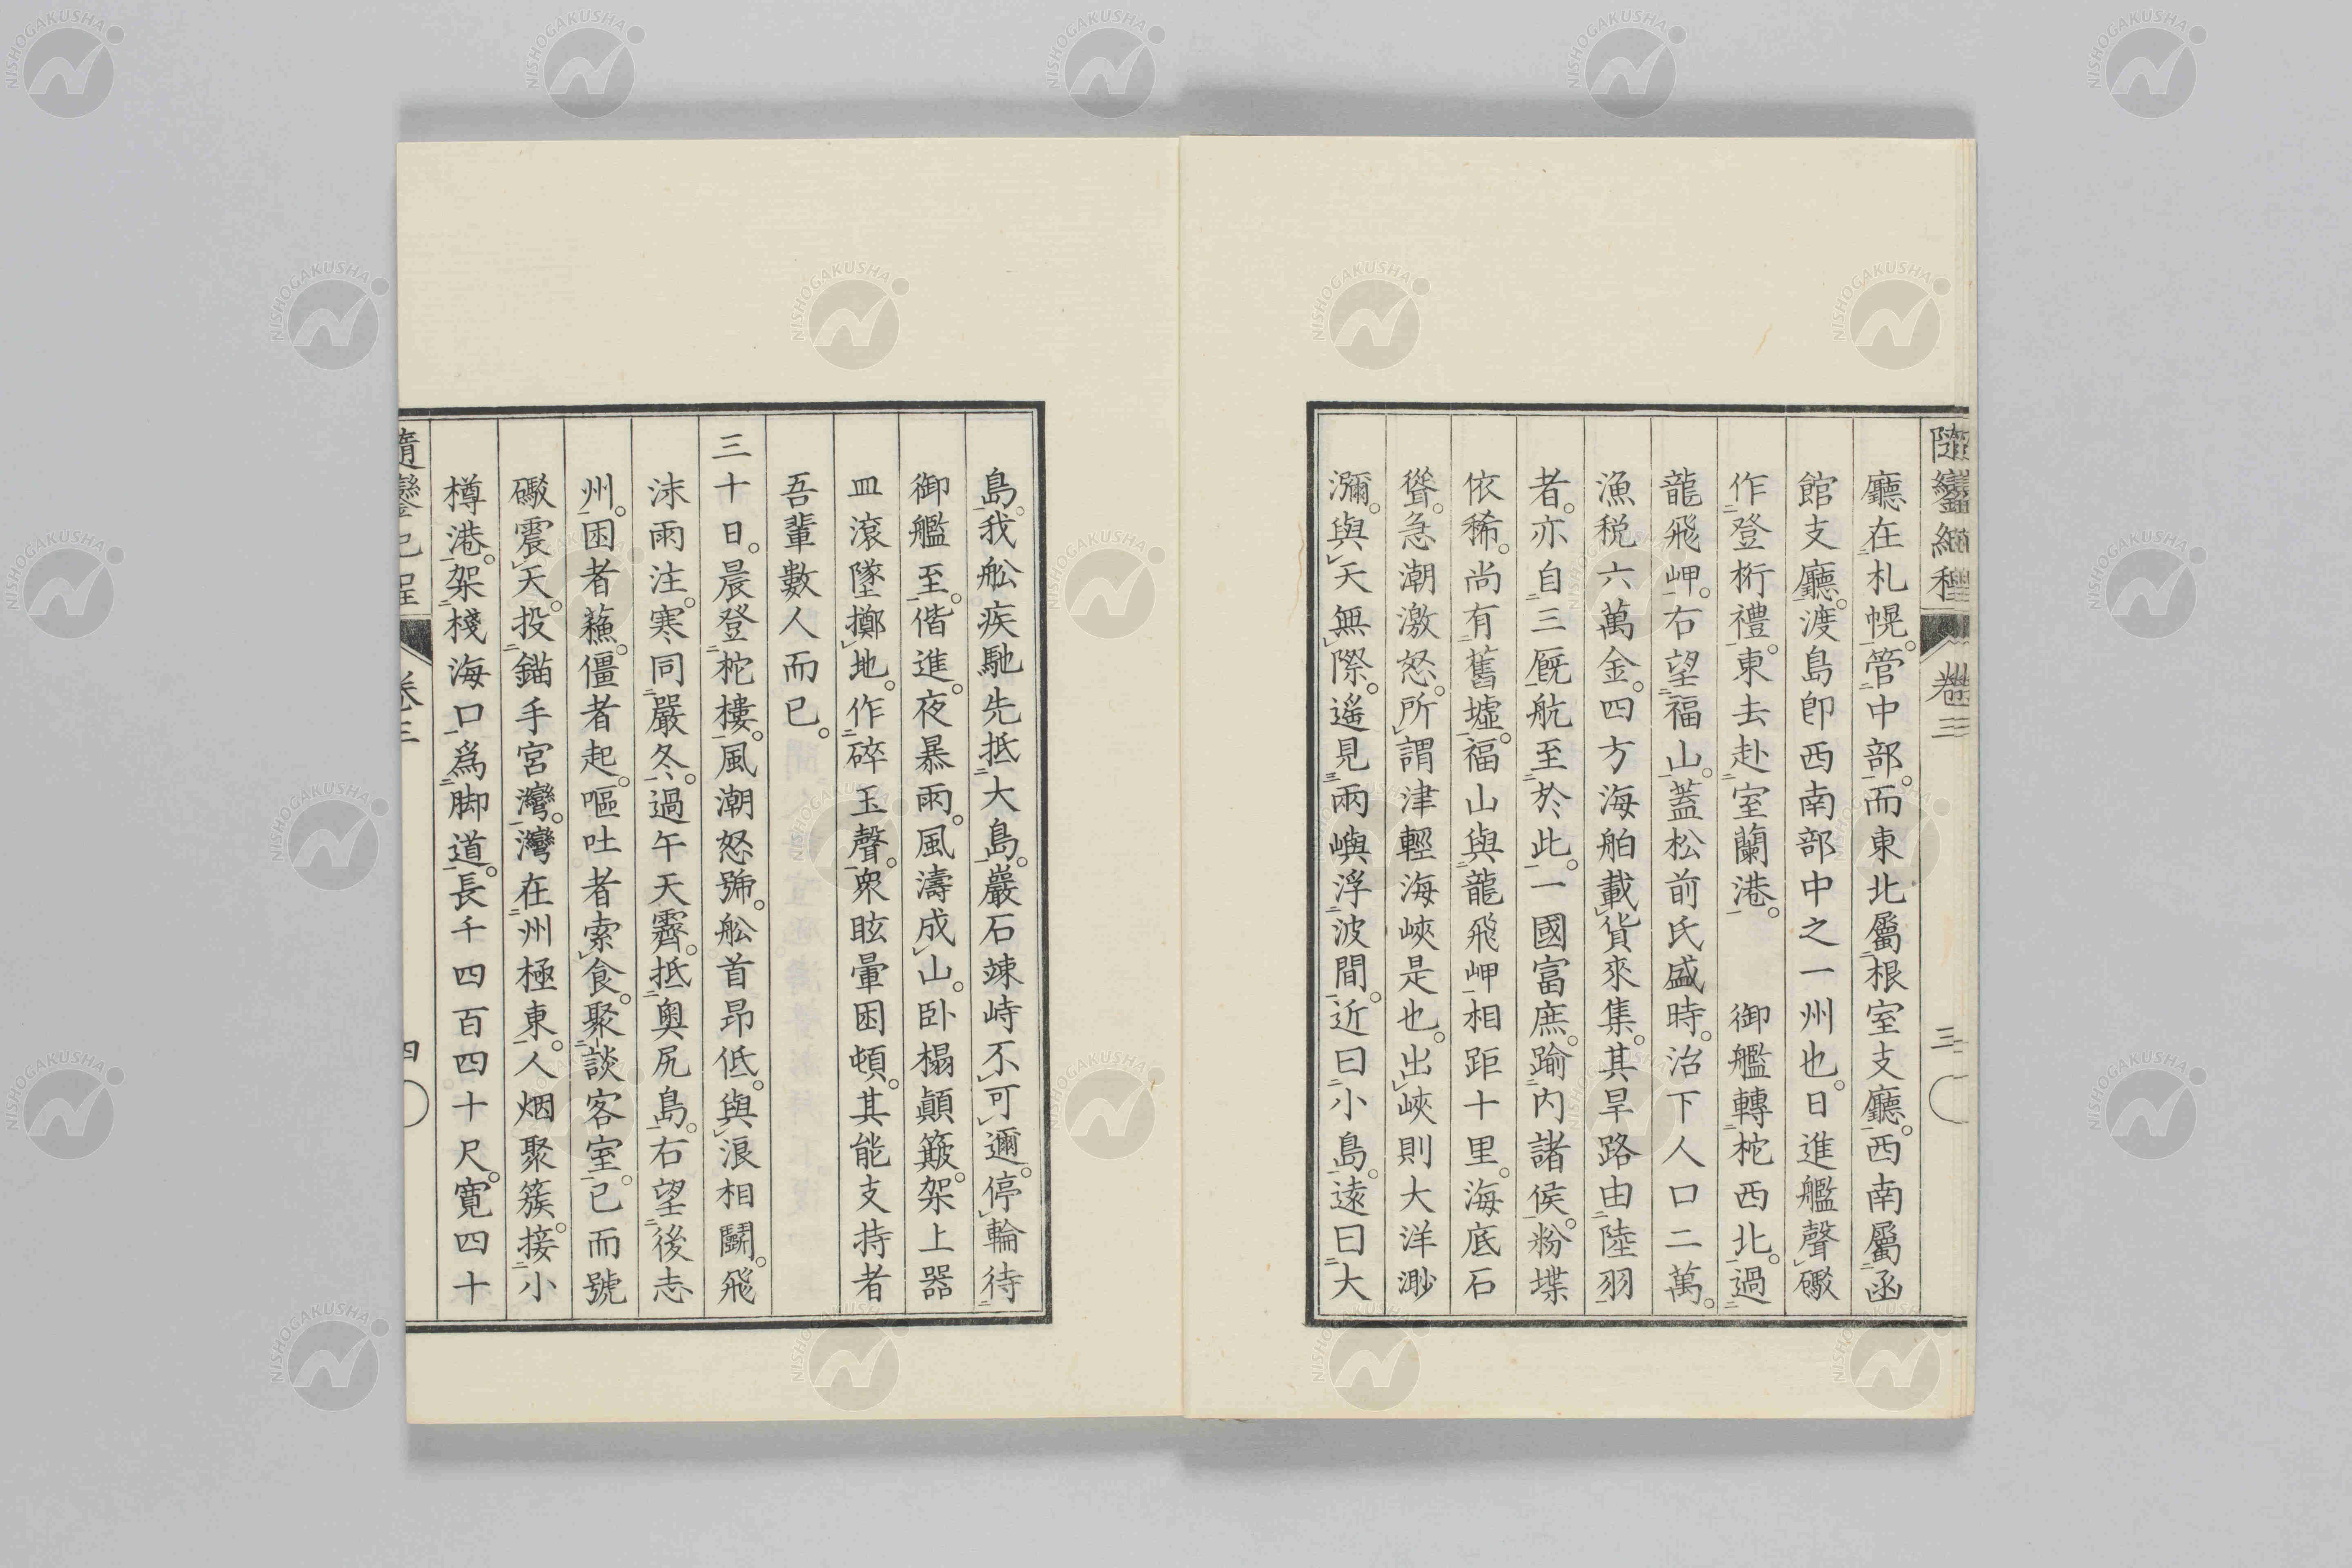 隨鑾紀程
卷三
三
廳在札幌。管中部。而東北屬根室支廳。西南屬函
館支廳。渡島卽西南部中之一州也。日進艦聲礮
作登桁禮。東去赴室蘭港。 御艦轉柁西北。過
龍飛岬。右望福山。蓋松前氏盛時。治下人口二萬。
漁税六萬金。四方海舶載貨來集。其旱路由陸羽
者。亦自三厩航至於此。一國富庶。踰內諸侯。粉堞
依稀。尚有舊墟。福山與龍飛岬相距十里。海底石
聳。急潮激怒。所謂津輕海峽是也。出峽則大洋渺
瀰。與天無際。遙見兩嶼浮波間。近曰小島。遠曰大
島。我舩疾馳先抵大島。巖石竦峙不可邇。停輪待
御艦至。偕進。夜暴雨。風濤成山。卧榻顛簸。架上器
皿滾墜擲地。作碎玉聲。衆眩暈困頓。其能支持者
吾輩數人而已。
三十日。晨登柁樓。風潮怒號。舩首昂低。與浪相鬭。飛
沫雨注。寒同嚴冬。過午天霽。抵奧尻島。右望後志
州。困者蘓。僵者起。嘔吐者索食。聚談客室。已而號
礮震天。投錨手宮灣。灣在州極東。人烟聚簇。接小
樽港。架棧海口爲脚道。長千四百四十尺。寬四十
隨鑾紀程
卷三
四
NISHOGAKUSHA